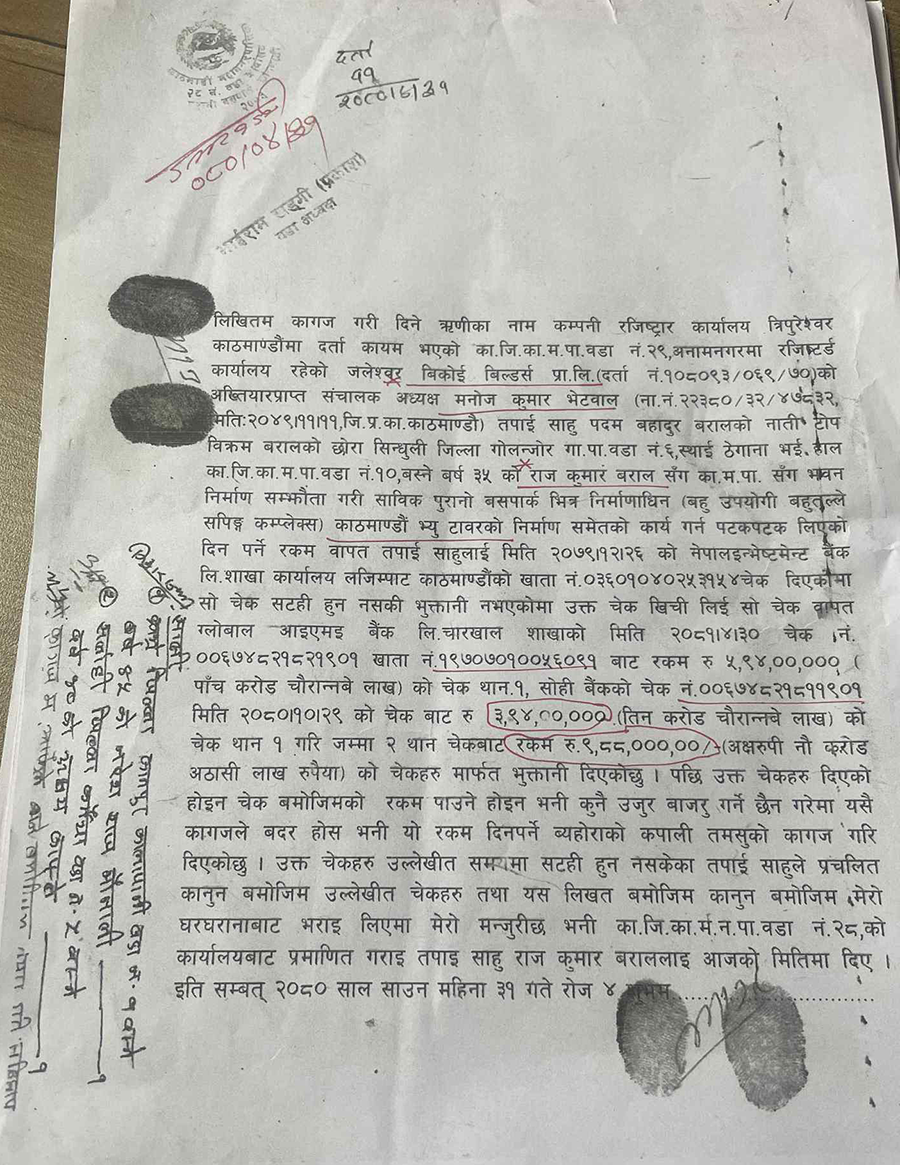 काठमाडौं महानगरपालिका
दर्ता
११
२०८०/४/३१
०८०/०४/३१
भाईराम खड्गी (प्रकाश)
वडा अध्यक्ष
लिखितम कागज गरी दिने ऋणीका नाम कम्पनी रजिष्ट्रार कार्यालय त्रिपुरेश्वर
काठमाण्डौमा दर्ता कायम भएको का.जि.का.म.पा.वडा नं.२९,अनामनगरमा रजिष्टर्ड
कार्यालय रहेको जलेश्वर बिकोई बिल्डर्स प्रा.लि.(दर्ता नं.१०८०९३/०६९/७०)को
अख्तियारप्राप्त संचालक अध्यक्ष मनोज कुमार भेटवाल (ना.नं.२२३८०/३२/४७८३२,
मिति:२०४९।११।११,जि.प्र.का.काठमाण्डौ) तपाई साहु पदम बहादुर बरालको नाती टोप
विक्रम बरालको छोरा सिन्धुली जिल्ला गोलन्जोर गा.पा.वडा नं.६,स्थाई ठेगाना भई हाल
का.जि.का.म.पा.वडा नं.१०,बस्ने बर्ष ३५ को राज कुमार बराल सँग का.म.पा. सँग भवन
निर्माण सम्झौता गरी साविक पुरानो बसपार्क भित्र निर्माणाधिन (बहु उपयोगी बहुतल्ले
सपिङ्ग कम्प्लेक्स) काठमाण्डौं भ्यु टावरको निर्माण समेतको कार्य गर्न पटकपटक लिएको
दिन पर्ने रकम वापत तपाई साहुलाई मिति २०७९।१२।२६ को नेपालइन्भेष्टमेन्ट बैंक
लि.शाखा कार्यालय लजिम्पाट काठमाण्डौंको खाता नं.०३६०१०४०२५३१५४चेक दिएकोमा
सो चेक सटही हुन नसकी भुक्तानी नभएकोमा उक्त चेक खिची लिई सो चेक वापत
ग्लोबाल आइएमइ बैंक लि.चारखाल शाखाको मिति २०८१।४।३० चेक नं.
००६७४८२१८२१९०१ खाता नं.१९७०७०१००५६०९१ बाट रकम रु ५,९४,००,००० (
पाँच करोड चौरान्नबे लाख) को चेक थान.१, सोही बैंकको चेक नं.००६७४८२१८११९०१
मिति २०८०।१०।२९ को चेक बाट रु ३,९४,००,००० (तिन करोड चौरान्नबे लाख) को
चेक थान १ गरि जम्मा २ थान चेकबाट रकम रु.९,८८,०००,००/-(अक्षरुपी नौ करोड
अठासी लाख रुपैया) को चेकहरु मार्फत भुक्तानी दिएकोछु । पछि उक्त चेकहरु दिएको
होइन चेक बमोजिमको रकम पाउने होइन भनी कुनै उजुर बाजुर गर्ने छैन गरेमा यसै
कागजले बदर होस भनी यो रकम दिनपर्ने ब्यहोराको कपाली तमसुको कागज गरि
दिएकोछु । उक्त चेकहरु उल्लेखीत समयमा सटही हुन नसकेका तपाई साहुले प्रचलित
कानुन बमोजिम उल्लेखीत चेकहरु तथा यस लिखत बमोजिम कानुन बमोजिम मेरो
घरघरानाबाट भराइ लिएमा मेरो मन्जुरीछ भनी का.जि.का.म.न.पा.वडा नं.२८,को
कार्यालयबाट प्रमाणित गराइ तपाइ साहु राज कुमार बराललाइ आजको मितिमा दिए ।
इति सम्बत् २०८० साल साउन महिना ३१ गते रोज ४ शुभम
साक्षी